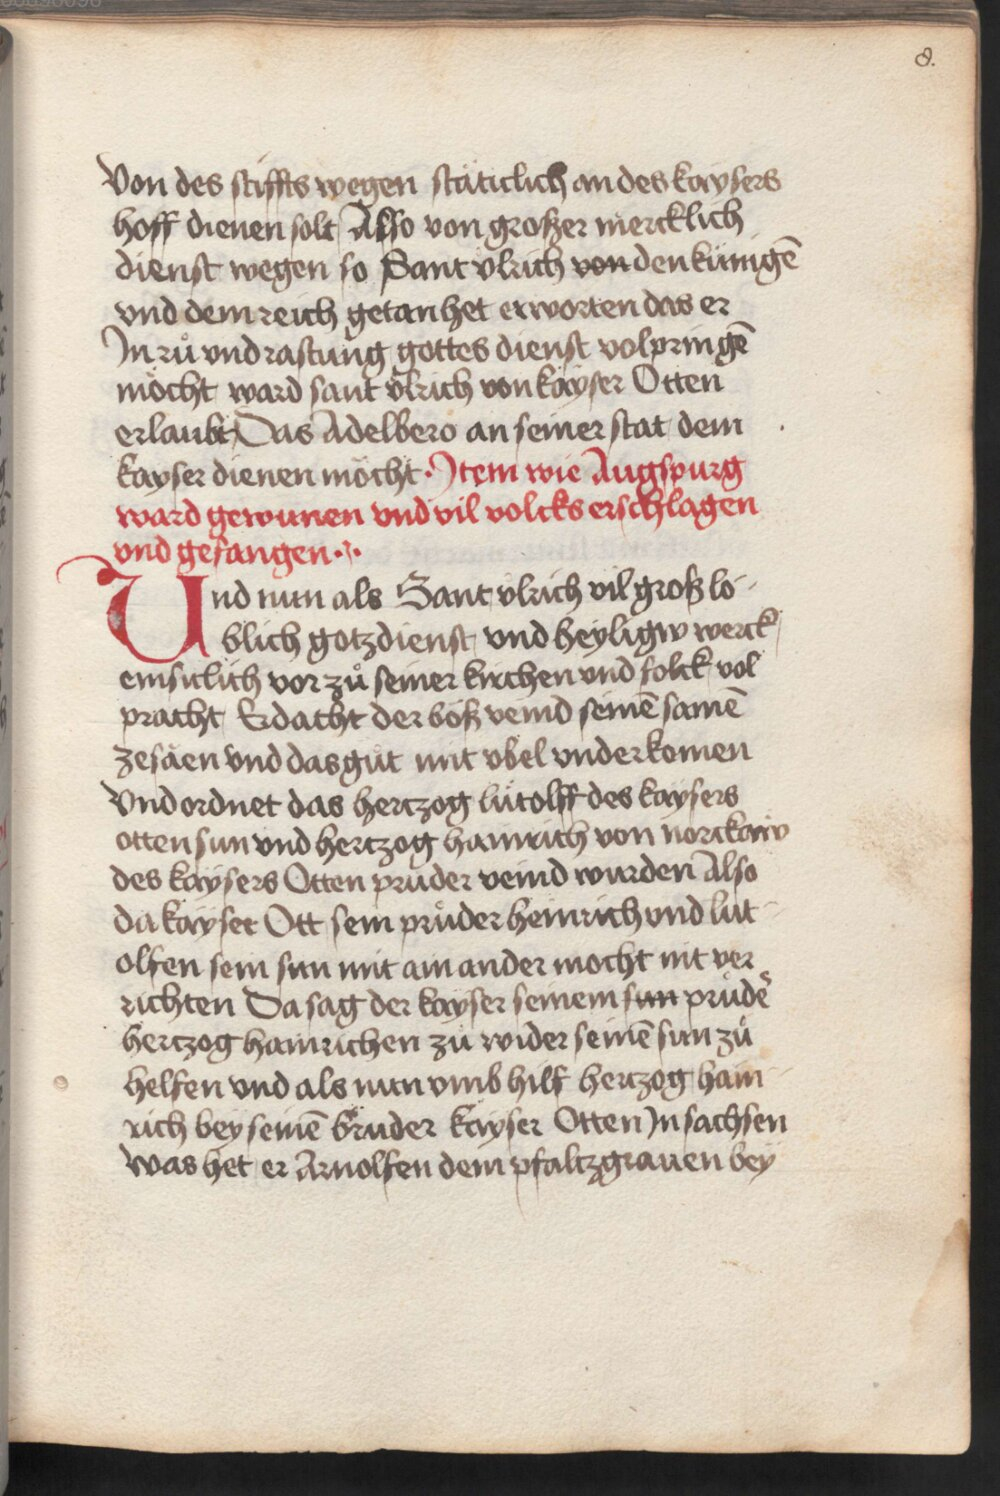 8.
Von des stiffts wegen stäticlich an des kaysers
hoff dienen solt Also von großer mercklich
dienst wegen so Sant ůlrich von den künigē
vnd dem reich getan het erworben das er
In rů vnd rastung gottes dienst volpringē
möcht ward sant ůlrich von kayser Otten
erlaubt Das Adelbero an seiner stat dem
kayser dienen möcht · Item wie Augspurg
ward gewunen vnd vil volcks erschlagen
vnd gefangen ·:·
Und nun als Sant vlrich vil groß lo-
blich gotzdienst vnd heyligw werck
emsiclich vor zů seiner kirchen vnd folck vol
pracht Erdacht der böß veind seinē samē
zesäen vnd das gůt mit vbel vnderkomen
Vnd ordnet das hertzog lütolff des kaysers
otten sun vnd hertzog hainrich von norckaw
des kaysers Otten průder veind wurden Also
da kayser Ott sein průder heinrich vnd lüt-
olfen sein sun mit ain ander mocht nit ver
richten Da sag der kayser seinem sun průdē
hertzog hainrichen zů wider seinē sun zů
helfen vnd als nun vmb hilf hertzog hain-
rich bey seinē brůder kayser Otten In sachsen
was het er Arnolfen dem pfaltzgrauen bey